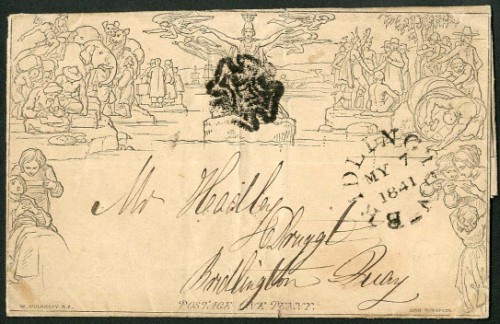 BRIDLINGTON
MY 7
1841
Mr Headley
Druggt
Bridlington Quay
POSTAGE ONE PENNY.
W. MULREADY. R.A.
JOHN THOMPSON